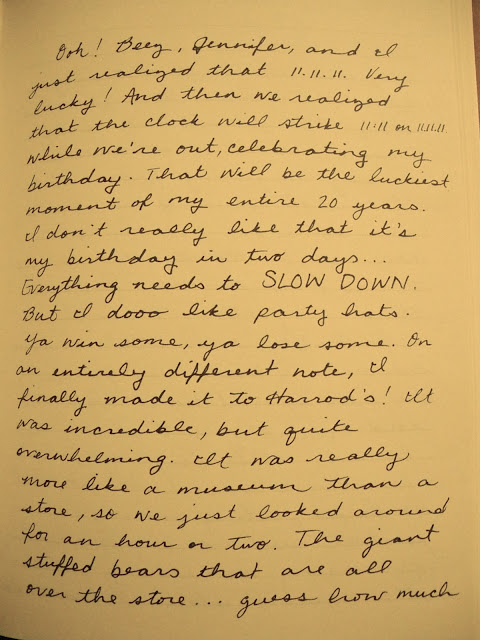 Ooh! Beez, Jennifer, and I
just realized that 11.11.11. Very
lucky! And then we realized
that the clock will strike 11:11 on 11.11.11.
while we're out, celebrating my
birthday. That will be the luckiest
moment of my entire 20 years.
I don't really like that it's
my birthday in two days...
Everything needs to SLOW DOWN.
But I dooo like party hats.
Ya win some, ya lose some. On
an entirely different note, I
finally made it to Harrod's! It
was incredible, but quite
overwhelming. It was really
more like a museum than a
store, so we just looked around
for an hour or two. The giant
stuffed bears that are all
over the store... guess how much